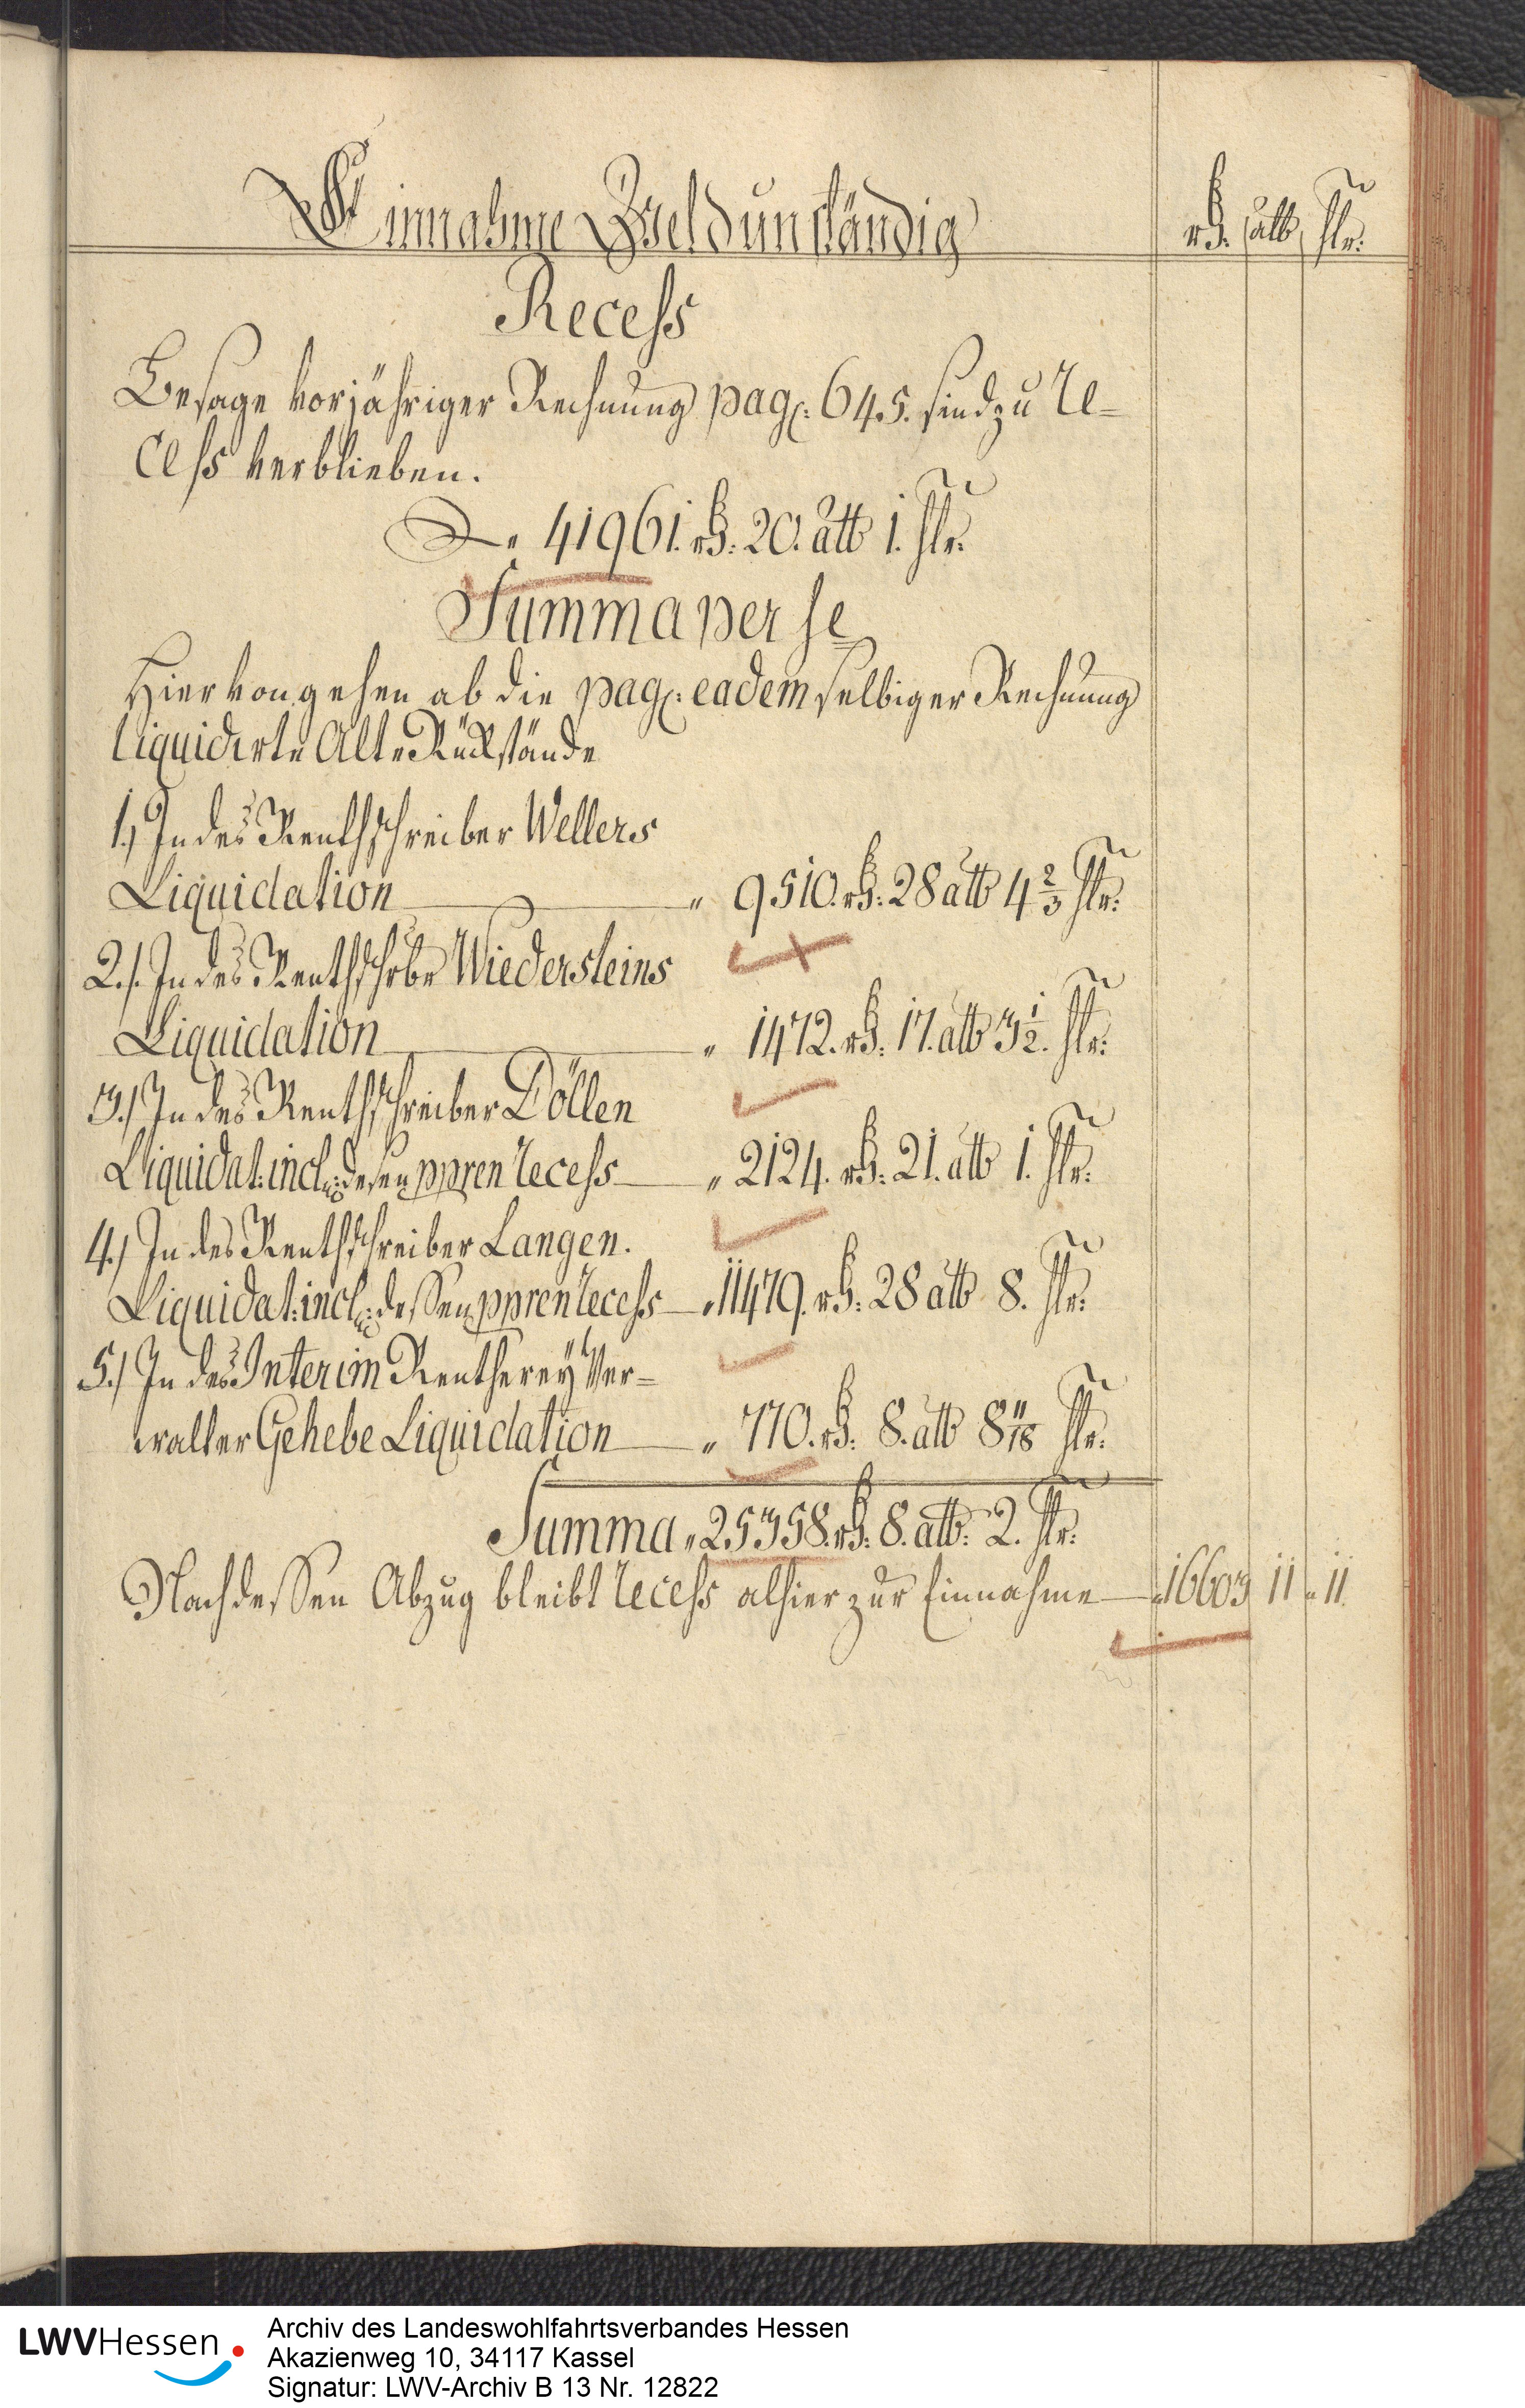 Einnahme Geld unständig
rth. alb hlr:
Recess
Besage vorjähriger Rechnung pag: 645. sind zu Re-
cess verblieben.
41961. rth: 20. alb 1. hlr:
Summa per se
Hiervon gehen ab die pag: eadem selbiger Rechnung
liquidirte Alte Rückstände
1.) In des Renthschreiber Wellers
Liquidation " 9510. rth: 28 alb 4 2/3 hlr:
2.) In des Renthschrbr Wiedersteins
Liquidation " 1472. rth: 17. alb 3 1/2. hlr:
3.) In des Renthschreiber Döllen
Liquidat: incl: desen ppren recess " 2124. rth: 21. alb 1. hlr:
4.) In des Renthschreiber Langen.
Liquidat: incl: dessen ppren recess " 11479. rth: 28 alb 8. hlr:
5.) In des Interim Rentherey Ver-
walter Gehebe Liquidation " 770. rth: 8. alb 8 11/18 hlr:
Summa " 25358. rth: 8. alb: 2. hlr:
Nach dessen Abzug bleibt recess alhier zur Einnahme " 16603 11 " 11.
LWVHessen
Archiv des Landeswohlfahrtsverbandes Hessen
Akazienweg 10, 34117 Kassel
Signatur: LWV-Archiv B 13 Nr. 12822